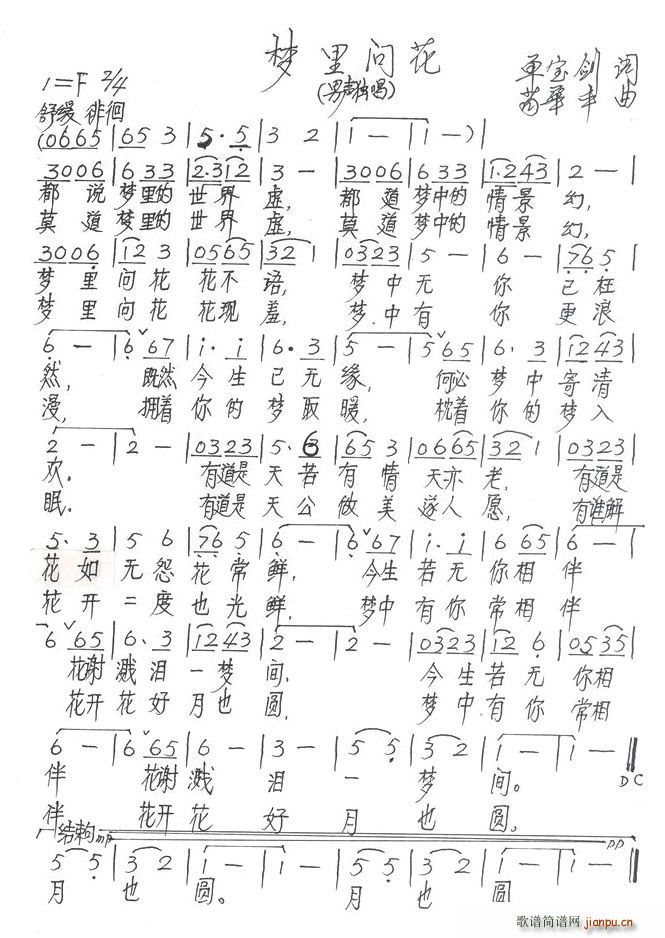 梦里问花
(男声独唱)
1=F 2/4
单宝剑 词
黄华丰 曲
舒缓 徘徊
(0665 | 65 3 | 5· 5 | 3 2 | 1 — | 1 — ) |
3006 | 633 | 2·312 | 3 — | 3006 | 633 | 1·243 | 2 — |
都说梦里的世界虚, 都道梦中的情景幻,
莫道梦里的世界虚, 莫道梦中的情景幻,
3006 | 12 3 | 0565 | 32 1 | 0323 | 5 — | 6 — | 76 5 |
梦里问花花不语, 梦中无你已枉
梦里问花花现羞, 梦中有你更浪
6 — | 6 ˅67 | i· i | 6· 3 | 5 — | 5 ˅65 | 6· 3 | 12 43 |
然, 既然今生已无缘, 何必梦中寄清
漫, 拥着你的梦取暖, 枕着你的梦入
2 — | 2 — | 0323 | 5· 6 | 65 3 | 0665 | 32 1 | 0323 |
欢。 有道是天若有情天亦老, 有道是
眠。 有道是天公做美遂人愿, 有谁解
5· 3 | 5 6 | 76 5 | 6 — | 6 ˅67 | i· i | 6 65 | 6 — |
花如无怨花常鲜, 今生若无你相伴
花开二度也光鲜, 梦中有你常相伴
6 ˅65 | 6· 3 | 12 43 | 2 — | 2 — | 0323 | 12 6 | 0535 |
花谢溅泪一梦间, 今生若无你相
花开花好月也圆, 梦中有你常相
6 — | 6 ˅65 | 6 — | 3 — | 5 5 | 3 2 | 1 — | 1 — ‖
伴 花谢溅泪一梦间。 DC
伴, 花开花好月也圆。
结束句 mp pp
5 5 | 3 2 | 1 — | 1 — | 5 5 | 3 2 | 1 — | 1 — ‖
月也圆。 月也圆
歌谱简谱网
jianpu.cn